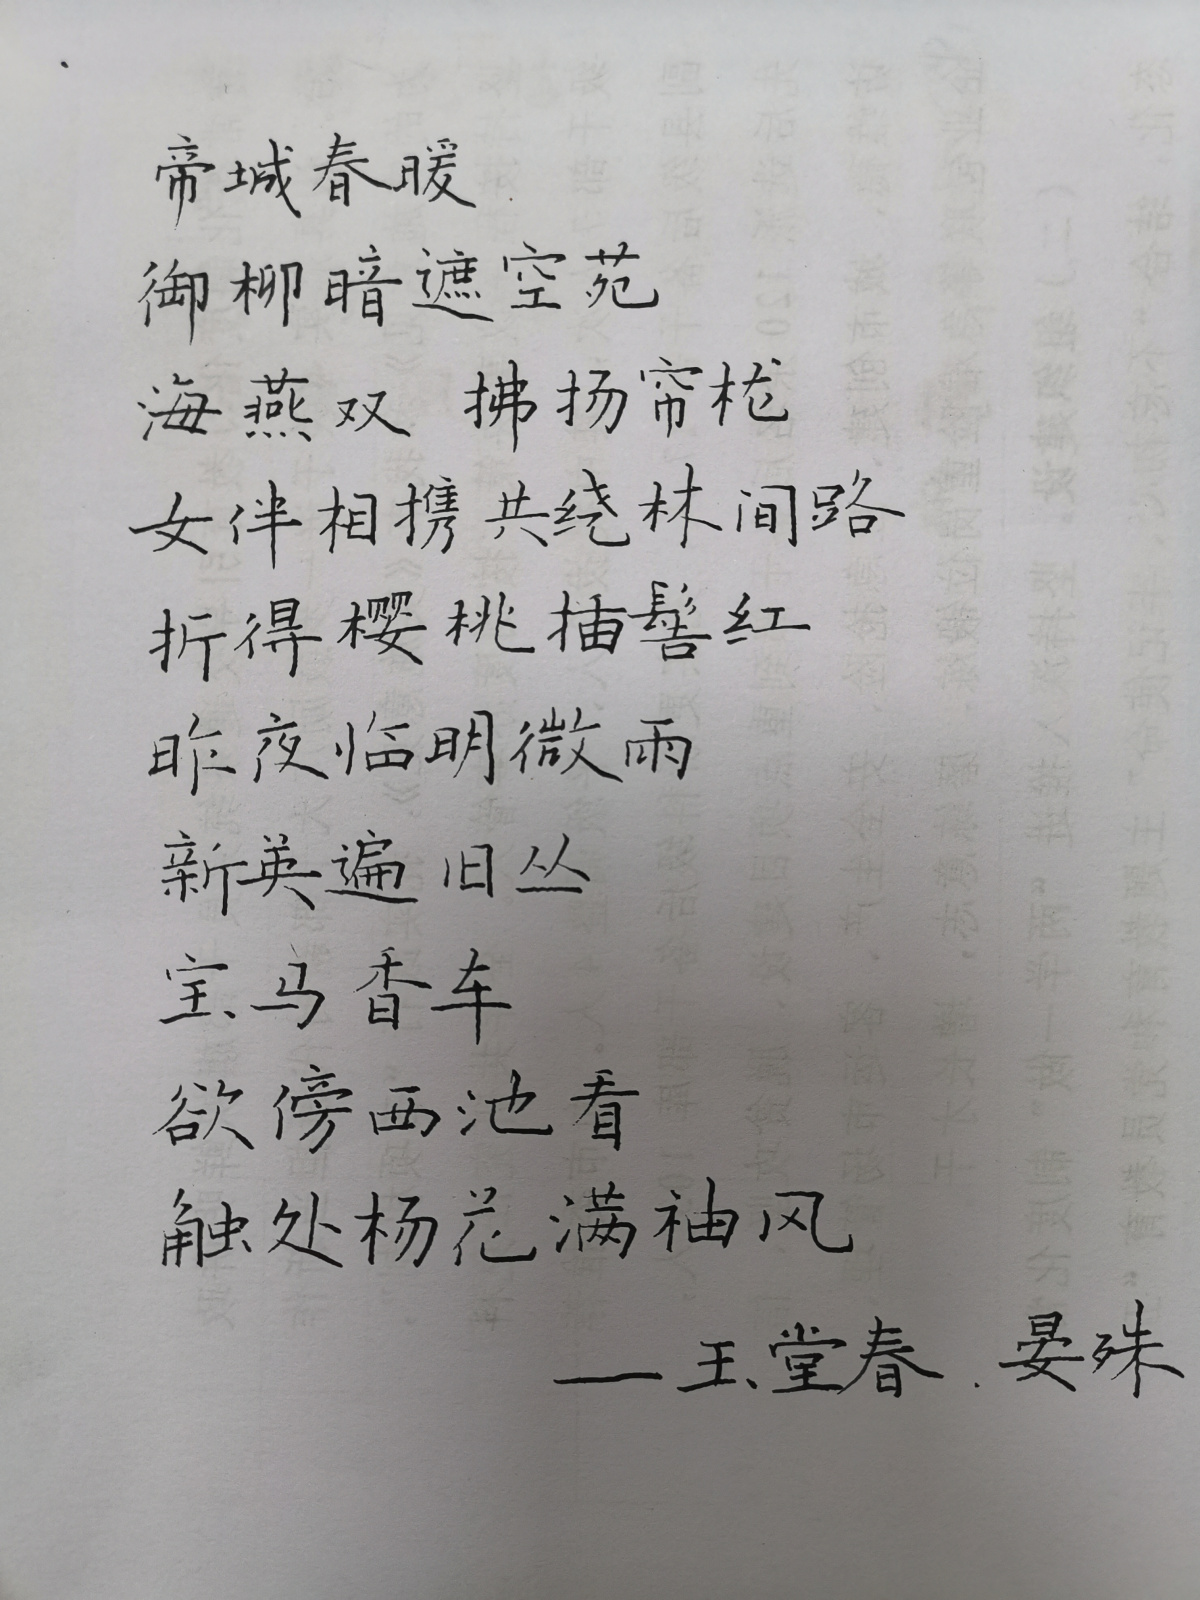 帝城春暖
御柳暗遮空苑
海燕双 拂扬帘栊
女伴相携共绕林间路
折得樱桃插髻红
昨夜临明微雨
新英遍旧丛
宝马香车
欲傍西池看
触处杨花满袖风
——玉堂春.晏殊